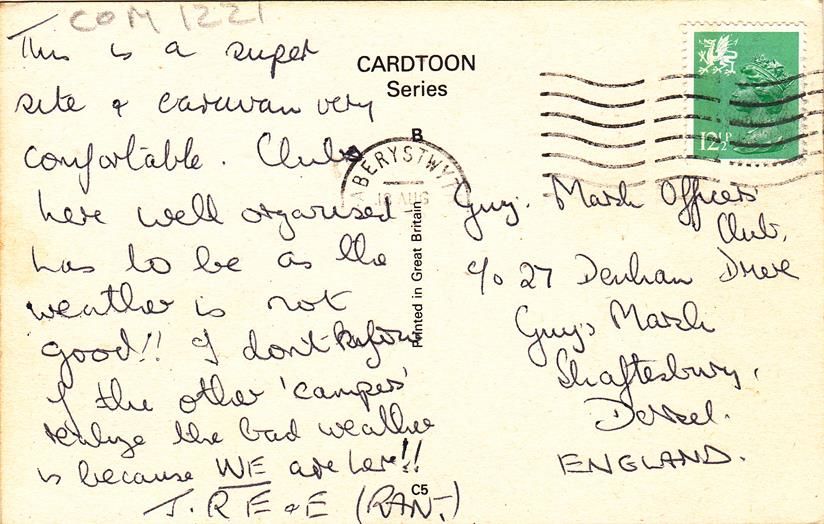 COM 1221
This is a super
site & caravan very
comfortable. Club
here well organised
has to be as the
weather is not
good!! I don't know
if the other 'campers'
realize the bad weather
is because WE are here!!
J. R E & E (RAN.)
CARDTOON
Series
B
Printed in Great Britain
C5
ABERYSTWYT
AUG
12½P
Guys Marsh Officers
Club,
c/o 27 Denham Drive
Guys Marsh
Shaftesbury,
Dorset.
ENGLAND.